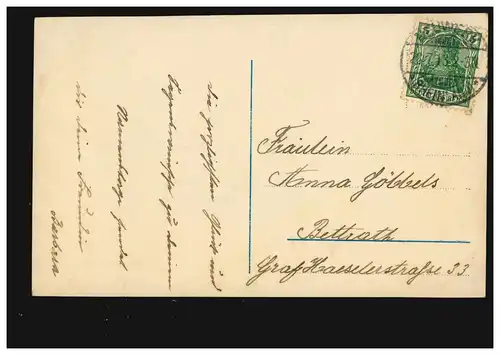 Die herzlichsten Glück und
Segenswünsche zu deinem
Namenstage sendet
dir deine Freundin
Barbara
Fräulein
Anna Göbbels
Bettrath
Graf Haeselerstraße 33